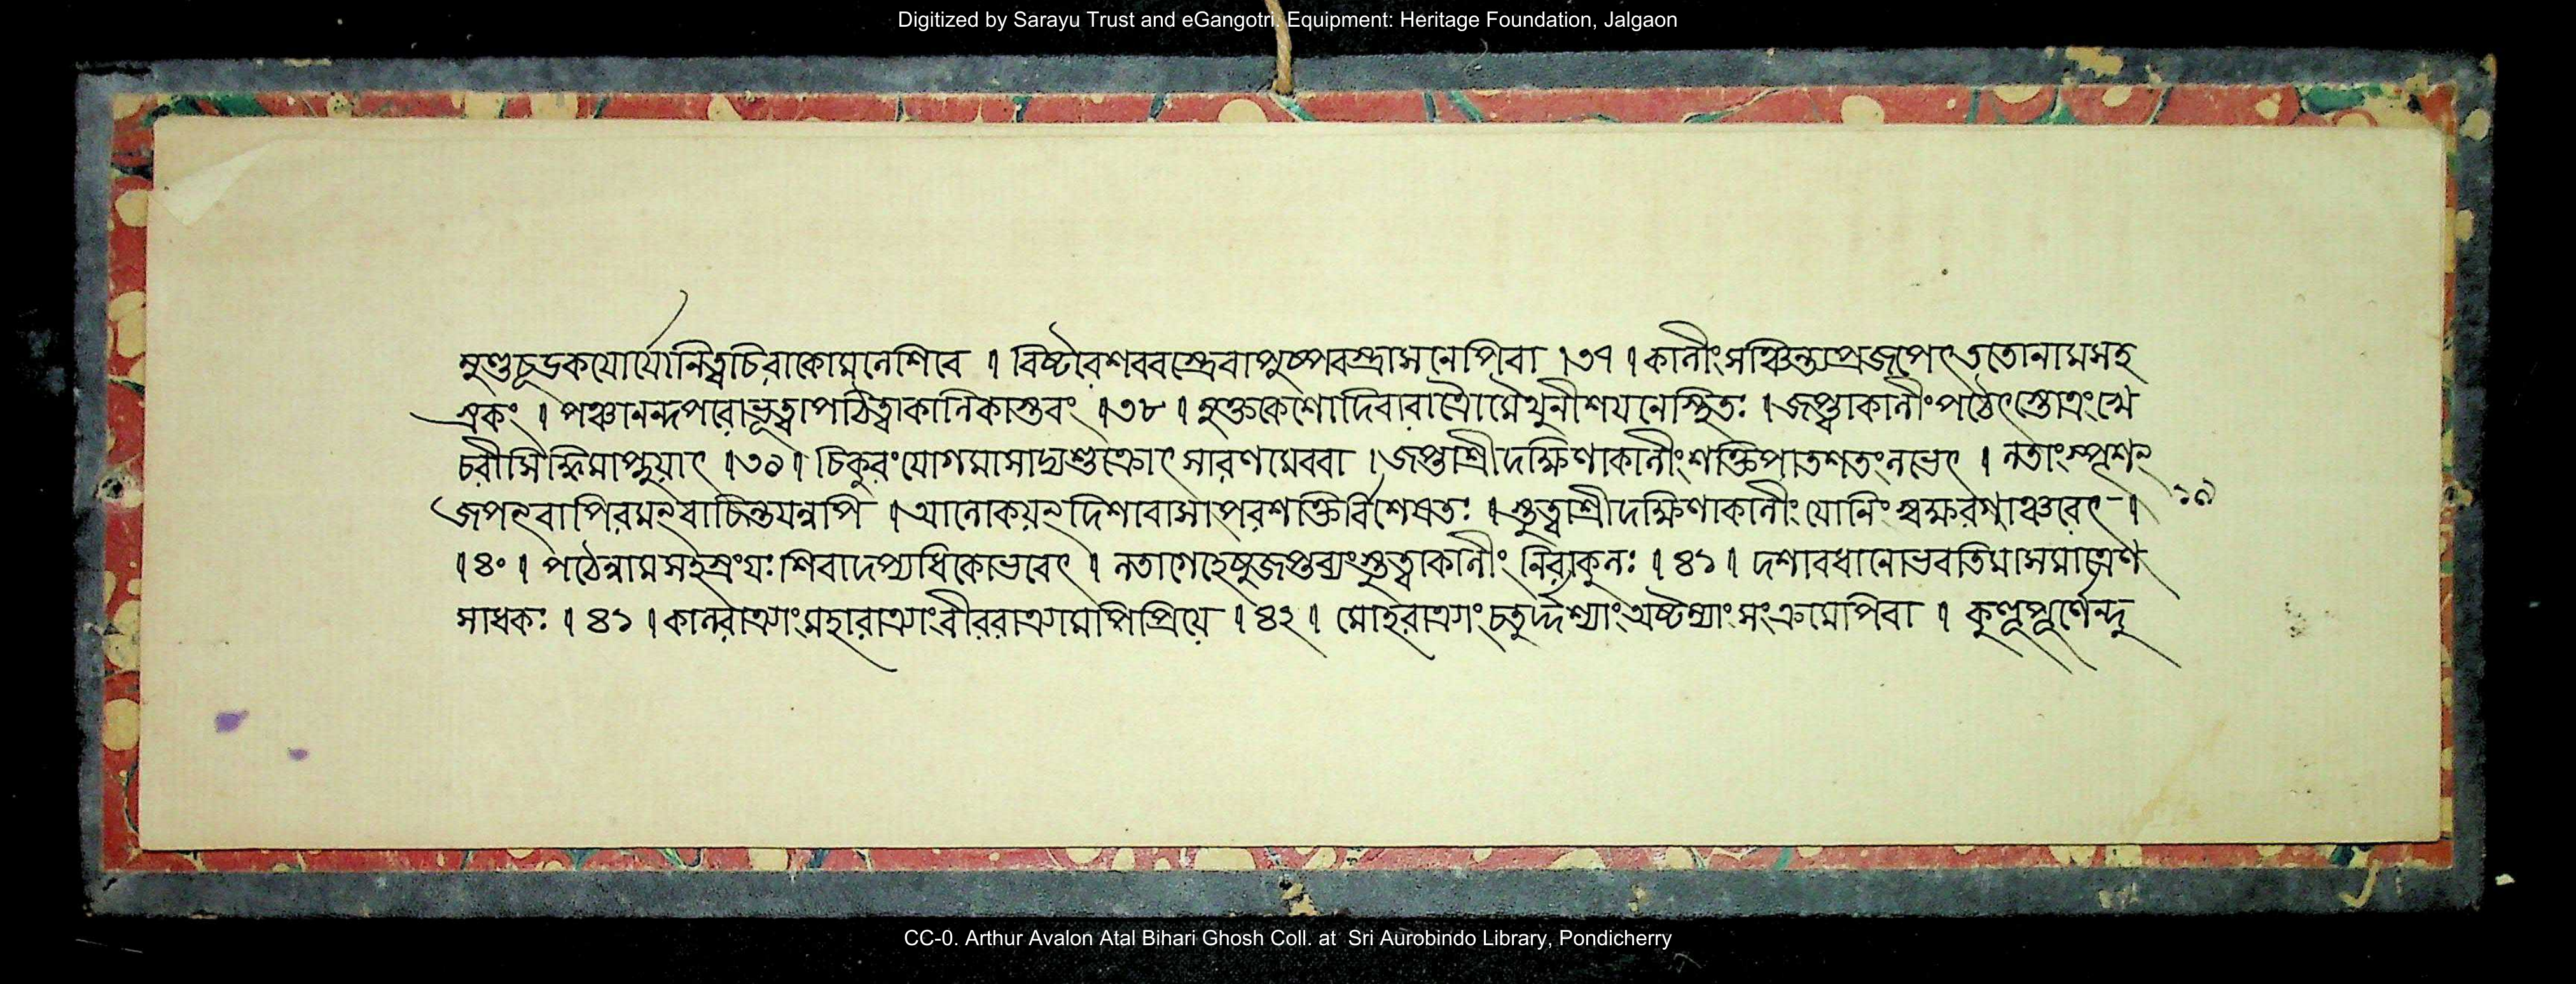 Digitized by Sarayu Trust and eGangotri. Equipment: Heritage Foundation, Jalgaon
শিবে । বিষ্টরেশববস্ত্রেবাপুষ্পবস্ত্রাসনেপিবা ।৩৭। কালীংসঞ্চিন্ত্যপ্রজপেৎততোনামসহ
স্রকং । পঞ্চানন্দপরোভূত্বাপঠিত্বাকালিকাস্তবং ।৩৮। মুক্তকেশোদিবারাত্রৌমৈথুনীশয়নেস্থিতঃ । জপ্ত্বাকালীংপঠেৎস্তোত্রংখে
চরীসিদ্ধিমাপ্নুয়াৎ ।৩৯। চিকুরংযোগমাসাদ্যশুক্রোৎসারণমেববা । জপ্তাশ্রীদক্ষিণাকালীংশক্তিপাতশতংলভেৎ । লতাংস্পৃশন্
জপন্বাপিরমন্বাচিন্তয়ন্নপি । আলোকয়ন্দিশাবাসাঃপরশক্তির্বিশেষতঃ । স্তুত্বাশ্রীদক্ষিণাকালীংযোনিং ।
১৯
।৪০। পঠেন্নামসহস্রংযঃশিবাদপ্যধিকোভবেৎ । লতাগেহেষুজপ্তব্যংস্তুত্বাকালীং নিরাকুলঃ ।৪১। দশাবধানোভবতিমাসমাত্রেণ
সাধকঃ ।৪১। কালরাত্র্যাংমহারাত্র্যাংবীররাত্র্যামপিপ্রিয়ে ।৪২। মোহরাত্র্যাংচতুর্দ্দশ্যাংঅষ্টম্যাংসংক্রমেপিবা । কুহূপূর্ণেন্দু
CC-0. Arthur Avalon Atal Bihari Ghosh Coll. at Sri Aurobindo Library, Pondicherry